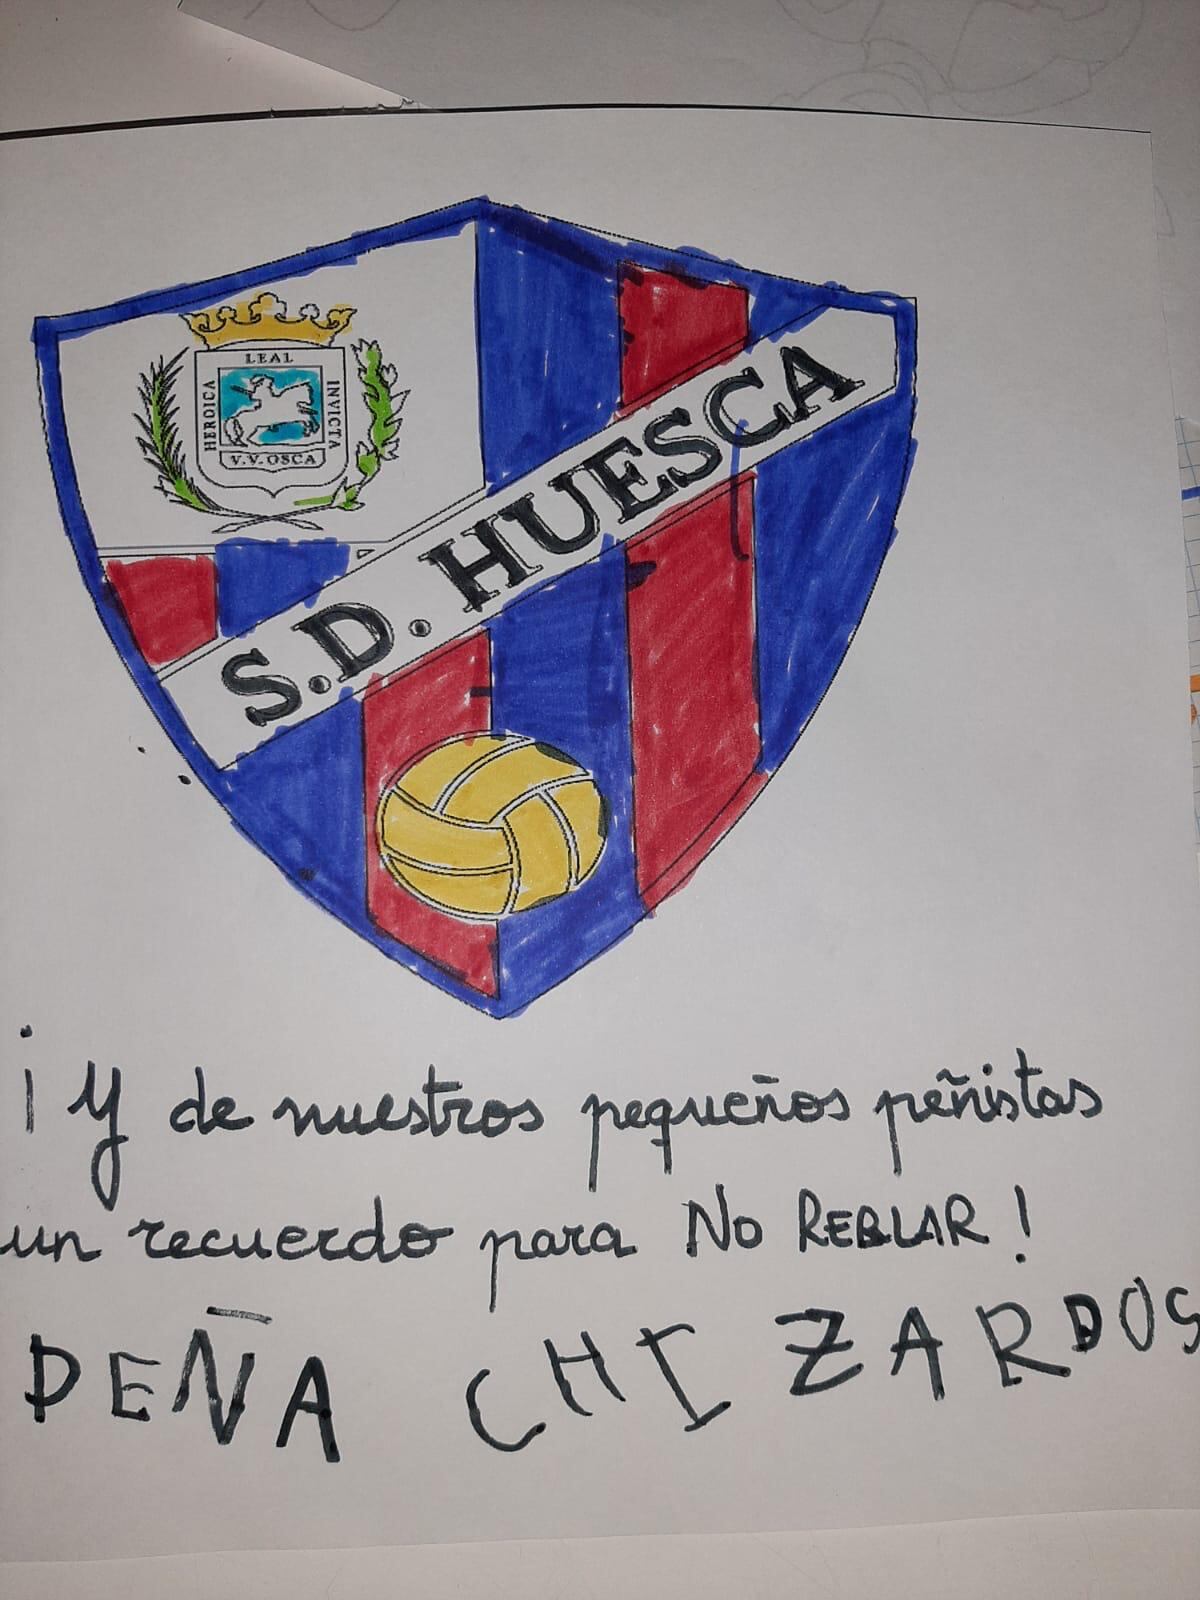 LEAL
HEROICA
INVICTA
V.V. OSCA
S.D. HUESCA
¡Y de nuestros pequeños peñistas
un recuerdo para NO REBLAR!
PEÑA CHIZARDOS